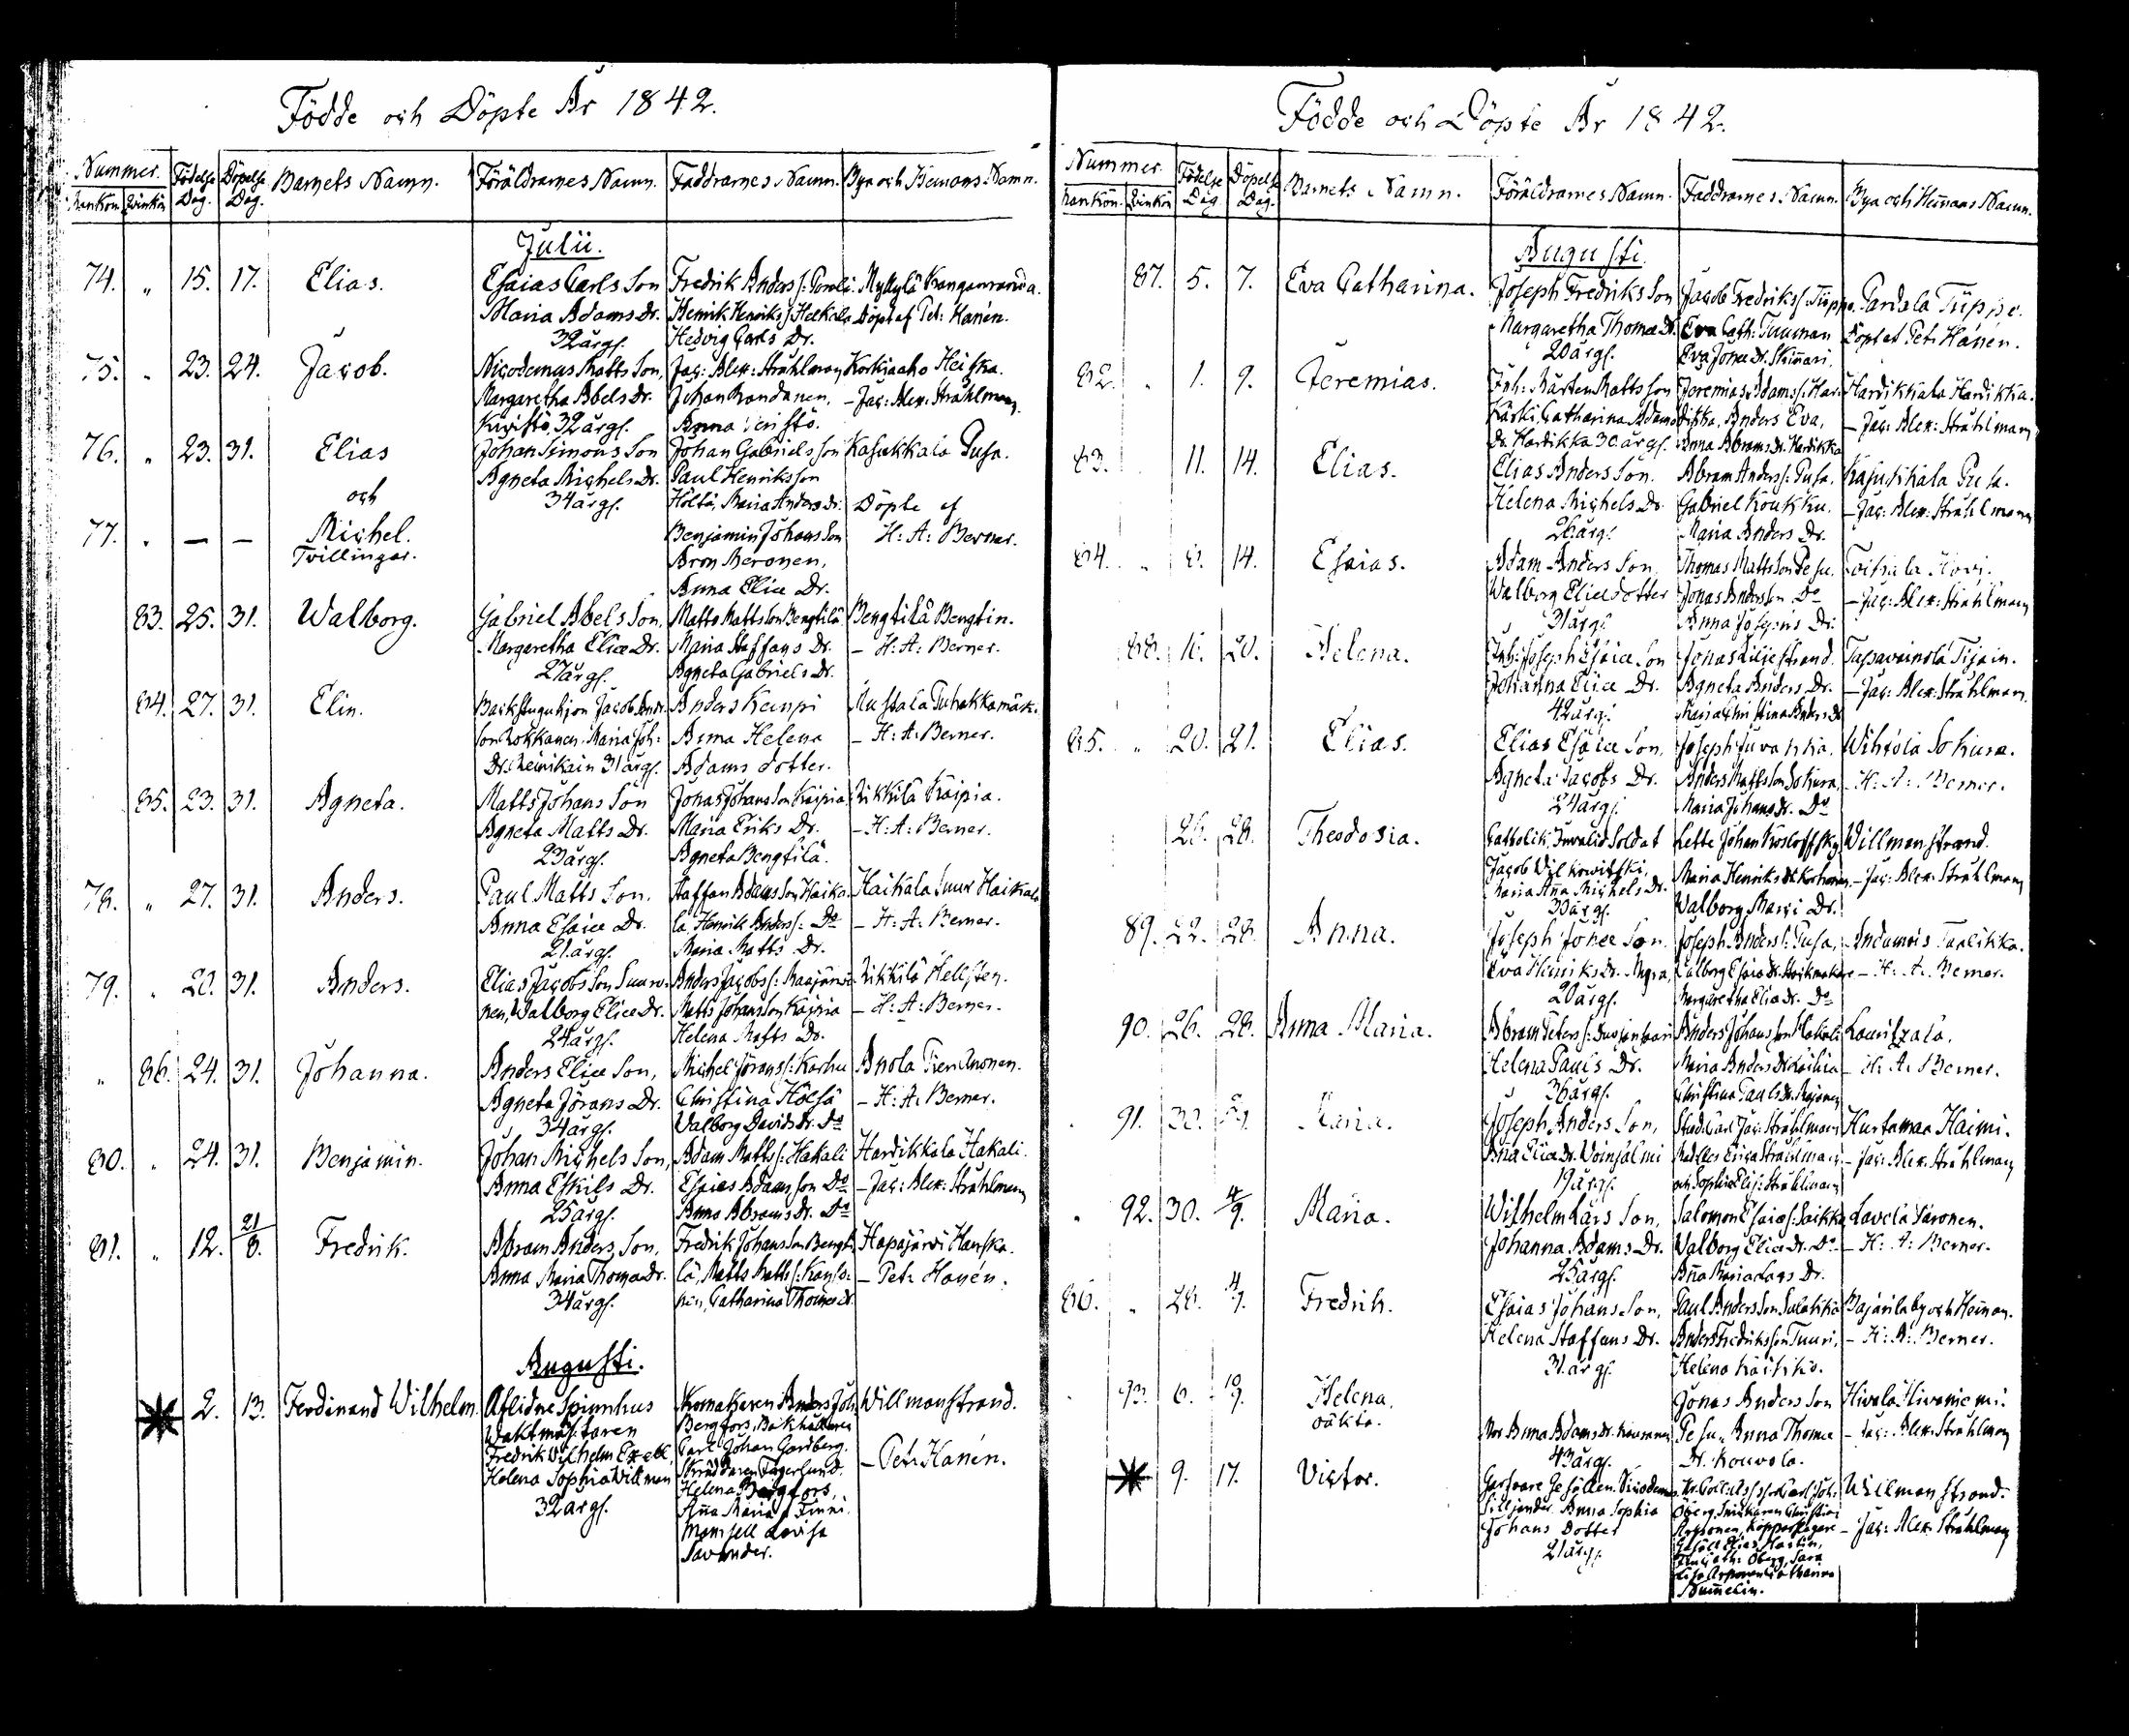 Födde och Döpte År 1842.
Nummer. Födelse Dag. Döpelse Dag. Barnets Namn. Föräldrarnes Namn. Faddrarnes Namn. Bya och Hemans Namn.
Mankön Qvinkön
Julii.
74. „ 15. 17. Elias. Esaias Carls Son Fredrik Anders s: Myllylä Kranganranda.
Maria Adams Dr. Henrik Henriks s: Heikala Döpt af Pet: Hanén.
32 årg. Hedvig Carls Dr.
75. „ 23. 24. Jacob. Nicodemus Matts Son, Jac: Alex: Strahlman Korkiaaho Heiska.
Margaretha Abels Dr. Johan Rondanen, – Jac: Alex: Strahlman.
32 årg. Anna
76. „ 23. 31. Elias Johan Simons Son Johan Gabriels son Kasukkala Pusa.
Agneta Michels Dr. Paul Henriks son
och 34 årg. Höltä, Maria Anders Dr. Döpte af
77. „ — — Michel. Benjamin Johans Son H: A: Berner.
Tvillingar. Aron Meronen,
Anna Eliæ Dr.
83. 25. 31. Walborg. Gabriel Abels Son, Matts Matts Son Bengtilä Bengtilä Bengtin.
Margaretha Eliæ Dr. Maria Staffans Dr. – H: A: Berner.
27 årg. Agneta Gabriels Dr.
84. 27. 31. Elin. Jacob Andr. Anders Kempi Mustala Tuhakkamäk.
son Rokkanen, Maria Joh: Anna Helena – H: A: Berner.
Dr. Reinikain 31 årg. Adams dotter.
85. 23. 31. Agneta. Matts Johans Son Jonas Johans Son Kaipia Rikkilä Kaipia.
Agneta Matts Dr. Maria Eriks Dr. – H: A: Berner.
23 årg. Agneta Bengtilä.
78. „ 27. 31. Anders. Paul Matts Son. Staffan Adams Son Haika- Haikala Suur Haikala
Anna Esaiæ Dr. la, Henrik Anders s: Do – H: A: Berner.
21 årg. Maria Matts Dr.
79. „ 20. 31. Anders. Elias Jacobs Son Suuro- Anders Jacobs s: Rikkilä Hellsten.
nen, Walborg Eliæ Dr. Matts Johans Son Kaipia – H: A: Berner.
24 årg. Helena Matts Dr.
„ 86. 24. 31. Johanna. Anders Eliæ Son, Michel Jörans s: Karhu Anola Pien Anonen.
Agneta Jörans Dr. Christina Hölsä – H: A: Berner.
34 årg. Walborg Davids Dr. Do
80. „ 24. 31. Benjamin. Johan Michels Son, Adam Matts s: Hakali Hardikkala Hakali.
Anna Eskils Dr. Esaias Adams son Do – Jac: Alex: Strahlman
25 årg. Anna Abrams Dr. Do
81. „ 12. 21/8. Fredrik. Abram Anders Son, Fredrik Johans Son Bengti- Hapajärvi Hanska.
Anna Maria Thomæ Dr. lä, Matts Matts s: – Pet: Hanén.
34 årg. Catharina Thomæ Dr.
Augusti.
2. 13. Ferdinand Wilhelm. Aflidne Spinnhus Skomakaren Anders Joh. Willmanstrand.
Waktmästaren Bergfors,
Fredrik Wilhelm Carl Johan Gardberg. – Pet: Hanén.
Helena Sophia Willman Skräddaren Fagerlund.
32 årg. Helena Bergfors,
Anna Maria Finni.
Mamsell Lovisa
Savander.
Födde och Döpte År 1842.
Nummer. Födelse Dag. Döpelse Dag. Barnets Namn. Föräldrarnes Namn. Faddrarnes Namn. Bya och Hemans Namn.
Mankön Qvinkön
Augusti.
87. 5. 7. Eva Catharina. Joseph Fredriks Son Jacob Fredriks s: Tiippa. Partala Tiippe.
Margaretha Thomæ Dr. Eva Cath: Tuuman Döpt af Pet: Hanén.
20 årg. Eva Jonæ Dr. Skinnari.
82. „ 1. 9. Jeremias. Inh: Mårten Matts Son Jeremias Adams s: Har- Hardikkala Hardikka.
Kärki, Catharina Adams dikka, Anders Eva, – Jac: Alex: Strahlman
Dr. Hardikka 30 årg. Anna Abrams Dr. Hardikka
83. 11. 14. Elias. Elias Anders Son. Abram Anders s: Pusa, Kasukkala Pusa.
Helena Michels Dr. Gabriel Koukku. – Jac: Alex: Strahlman
26 årg. Maria Anders Dr.
84. „ 8. 14. Esaias. Adam Anders Son, Thomas Matts Son Pesu. Toikala Hovi.
Walborg Eliæ dotter Jonas Anders son Do – Jac: Alex: Strahlman
31 årg. Anna Josephs Dr.
88. 16. 20. Helena. Inh: Joseph Esaiæ Son Jonas Liljestrand. Tapavainola Tijain.
Johanna Eliæ Dr. Agneta Anders Dr. – Jac: Alex: Strahlman
42 årg. Maria Christina Anders Dr
85. „ 20. 21. Elias. Elias Esaiæ Son, Joseph Juvakka. Wihtola Sohura.
Agneta Jacobs Dr. Anders Matts Son Sohura, – H: A: Berner.
24 årg. Maria Johans Dr. Do
26. 28. Theodosia. Catholik. Invalid Soldat Johan Kosloffsky Willmanstrand.
Jacob Maria Henriks Dr. Korhonen, – Jac: Alex: Strahlman
Maria Ana Michels Dr. Walborg Marci Dr.
30 årg.
89. 22. 28. Anna. Joseph Jonæ Son. Joseph Anders s: Pusa, Indamois Tarlikka.
Eva Henriks Dr. Myra, Walborg Esaiæ Dr. – H: A: Berner.
20 årg. Margaretha Eliæ Dr. Do
90. 26. 28. Anna Maria. Abram Peters s: Anders Johans Son Hakali Lauritzala.
Helena Pauls Dr. Maria Anders Dr. – H: A: Berner.
36 årg. Christina Pauls Dr.
91. 30. Maria. Joseph Anders Son, Jac: Strahlman Hurtamaa Haimi.
Ana Eliæ Dr. Woinjalmi Strahlman – Jac: Alex: Strahlman
19 årg. och Sophia Elis: Strahlman
„ 92. 30. 4/9. Maria. Wilhelm Lars Son, Salomon Esaiæ s: Paikka Lavola Saronen.
Johanna Adams Dr. Walborg Eliæ Dr. Do – H: A: Berner.
25 årg. Ana Maria Lars Dr.
86. „ 28. 4/9. Fredrik. Esaias Johans Son, Paul Anders Son Bajarila by och Heman.
Helena Staffans Dr. Anders Fredriks son Tuuri, – H: A: Berner.
31 årg. Helena
93. 6. 10/9. Helena. Jonas Anders Son Hivala Hivaniemi.
oäkta. Mor Anna Adams Dr. Pesu, Anna Thomæ – Jac: Alex: Strahlman
43 årg. Dr. Kouvola.
9. 17. Victor. Garfvare Gesällen Nicodemus Willmanstrand.
Siljander Anna Sophia Öberg, – Jac: Alex: Strahlman
Johans Dotter Argonen, Kopparslagare
21 årg. Gesäll Elias Martin,
Öberg, Sara
Catharina
Numelin.